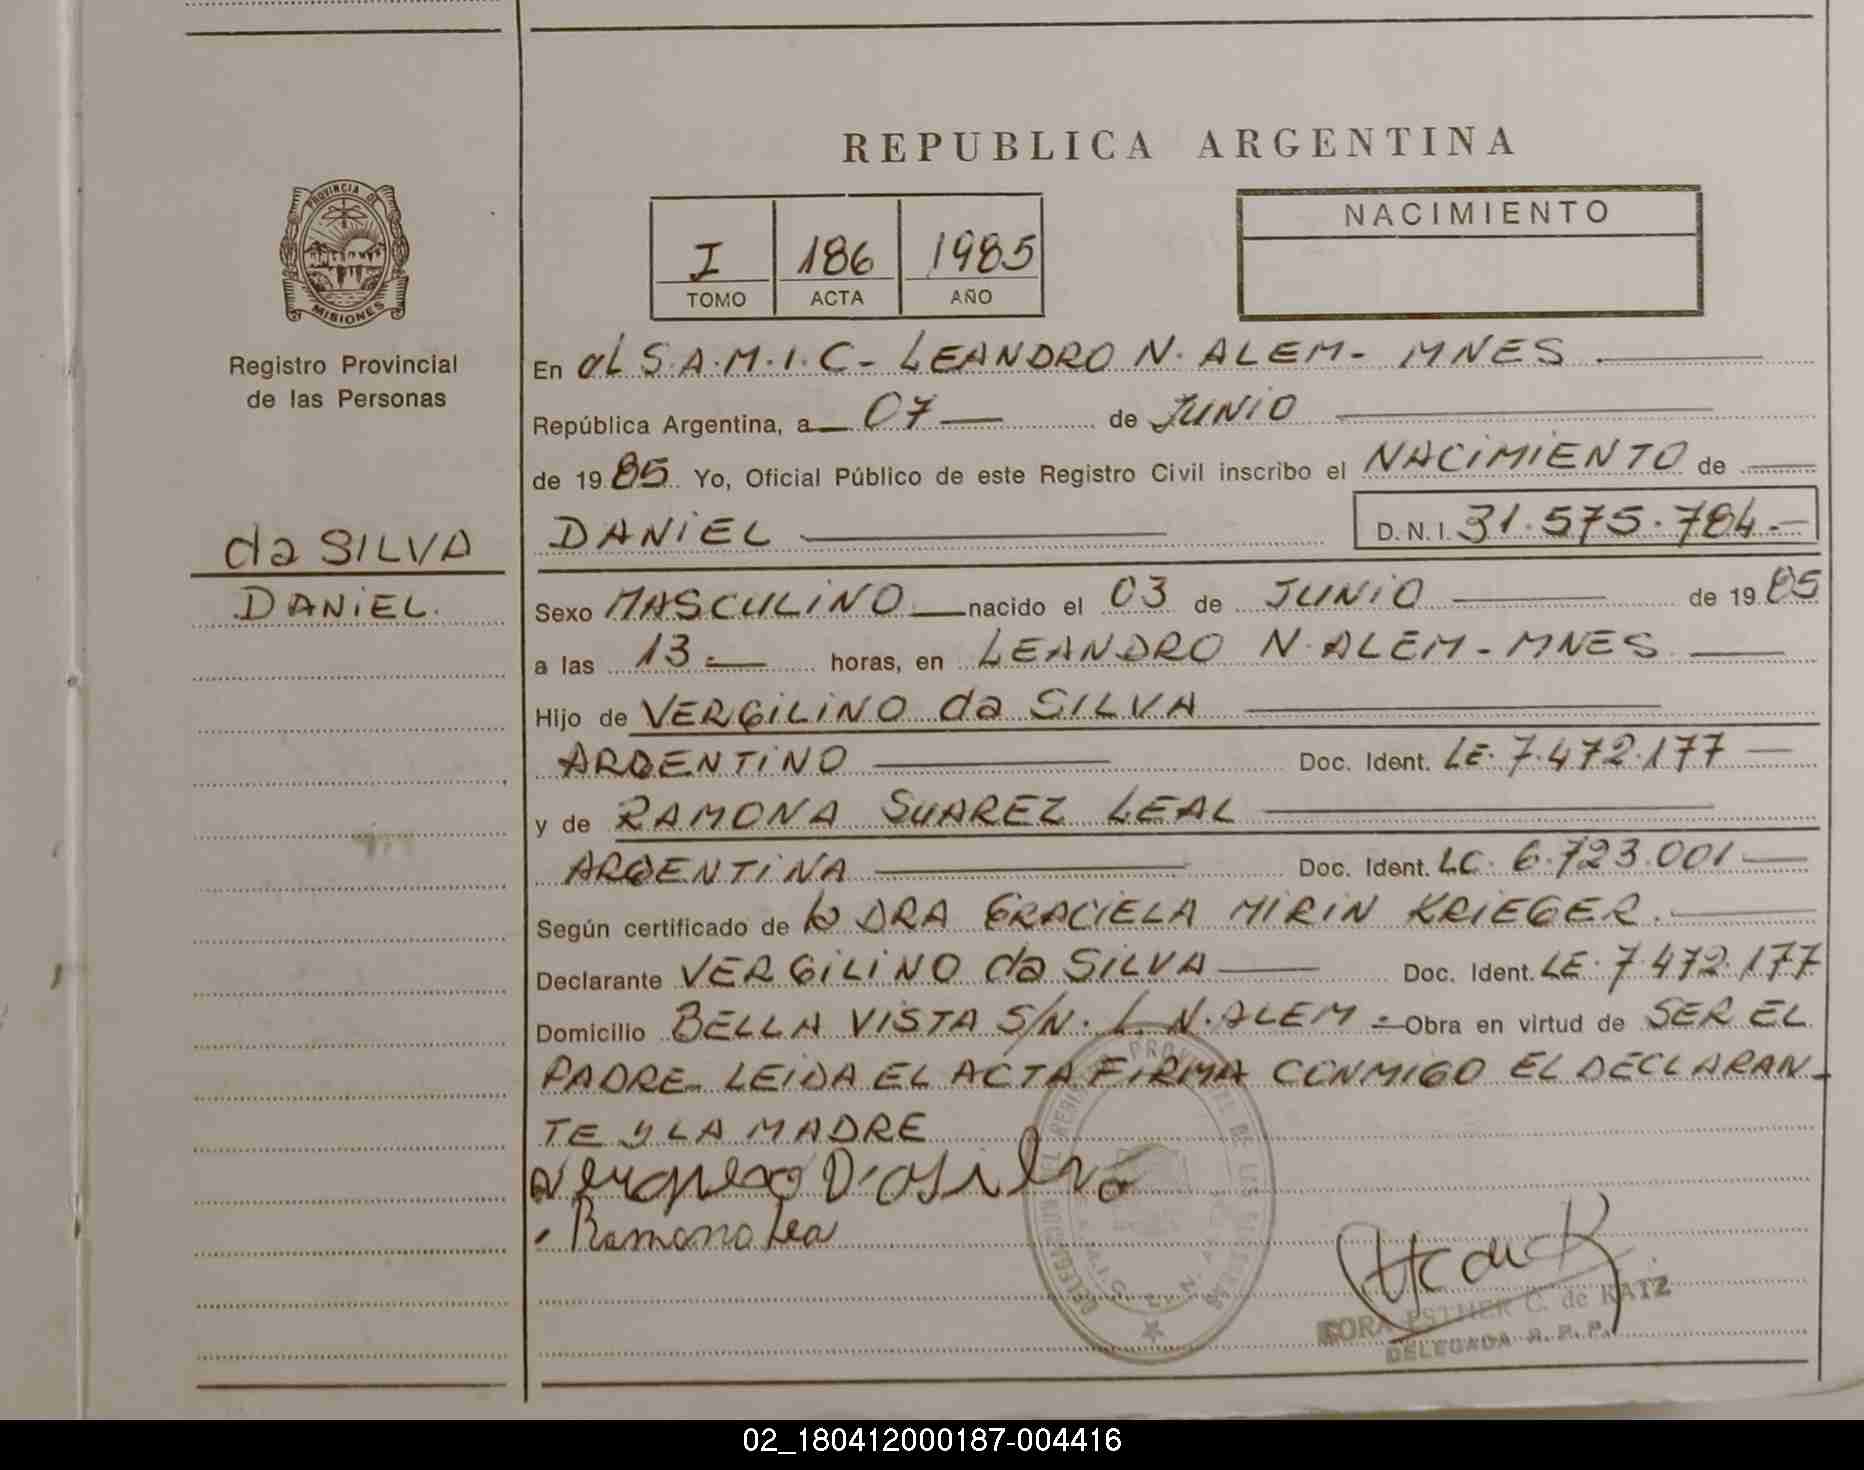 REPUBLICA ARGENTINA
PROVINCIA DE
MISIONES
Registro Provincial
de las Personas
I 186 1985
TOMO ACTA AÑO
NACIMIENTO
En el S.A.M.I.C- LEANDRO N. ALEM- MNES.
República Argentina, a 07 de JUNIO
de 1985 Yo, Oficial Público de este Registro Civil inscribo el NACIMIENTO de
da SILVA
DANIEL.
DANIEL D.N.I. 31.575.784.-
Sexo MASCULINO nacido el 03 de JUNIO de 1985
a las 13.- horas, en LEANDRO N. ALEM - MNES
Hijo de VERGILINO da SILVA
ARGENTINO Doc. Ident. LE. 7.472.177
y de RAMONA SUAREZ LEAL
ARGENTINA Doc. Ident. LC. 6.723.001
Según certificado de la DRA GRACIELA MIRIN KRIEGER.
Declarante VERGILINO da SILVA Doc. Ident. LE. 7.472.177
Domicilio BELLA VISTA S/N. L.N. ALEM.- Obra en virtud de SER EL
PADRE- LEIDA EL ACTA FIRMA CONMIGO EL DECLARAN-
TE Y LA MADRE
Ramona Lea
ESTHER C. de KATZ
DELEGADA R.P.P.
02_180412000187-004416